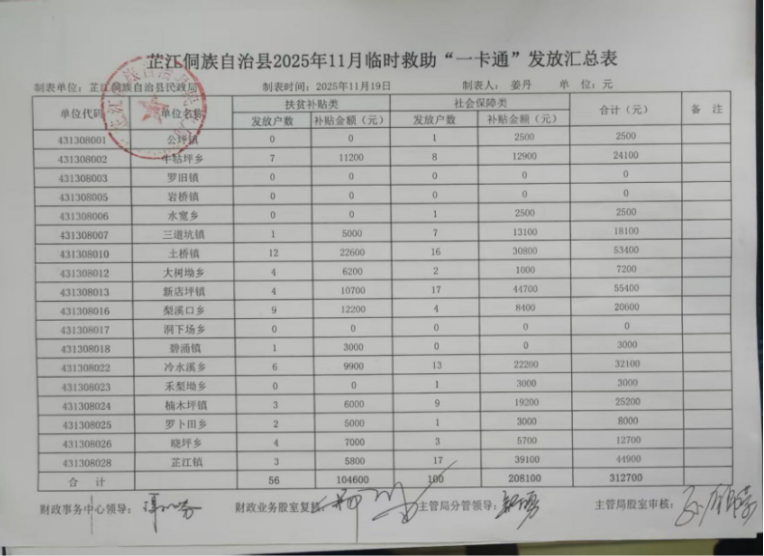 芷江侗族自治县2025年11月临时救助“一卡通”发放汇总表
制表单位：芷江侗族自治县民政局 制表时间：2025年11月19日 制表人：姜丹 单 位：元
单位代码 单位名称 扶贫补贴类 社会保障类 合计（元） 备 注
发放户数 补贴金额（元） 发放户数 补贴金额（元）
431308001 公坪镇 0 0 1 2500 2500
431308002 牛牯坪乡 7 11200 8 12900 24100
431308003 罗旧镇 0 0 0 0 0
431308005 岩桥镇 0 0 0 0 0
431308006 水宽乡 0 0 1 2500 2500
431308007 三道坑镇 1 5000 7 13100 18100
431308010 土桥镇 12 22600 16 30800 53400
431308012 大树坳乡 4 6200 2 1000 7200
431308013 新店坪镇 4 10700 17 44700 55400
431308016 梨溪口乡 9 12200 4 8400 20600
431308017 洞下场乡 0 0 0 0 0
431308018 碧涌镇 1 3000 0 0 3000
431308022 冷水溪乡 6 9900 13 22200 32100
431308023 禾梨坳乡 0 0 1 3000 3000
431308024 楠木坪镇 3 6000 9 19200 25200
431308025 罗卜田乡 2 5000 1 3000 8000
431308026 晓坪乡 4 7000 3 5700 12700
431308028 芷江镇 3 5800 17 39100 44900
合 计 56 104600 100 208100 312700
财政事务中心领导： 财政业务股室复核： 主管局分管领导： 主管局股室审核：